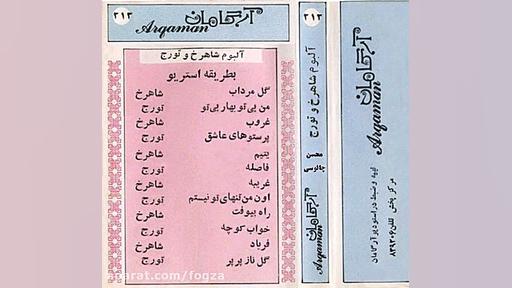 ۲۱۳ آرگامان
Arqaman
آلبوم شاهرخ و تورج
بطریقه استریو
گل مرداب شاهرخ
من بی تو بهار بی تو تورج
غروب شاهرخ
پرستوهای عاشق تورج
یتیم شاهرخ
فاصله تورج
غریبه شاهرخ
اون من تنهای تو نیستم تورج
راه بیوفت شاهرخ
خواب کوچه تورج
فرياد شاهرخ
گل ناز پرپر تورج
۲۱۳
آلبوم شاهرخ و تورج
آرگامان
Arqaman
آرگامان
Arqaman
تهیه و ضبط در استودیو آرگامان
مرکز پخش تلفن
aparat.com/fogza